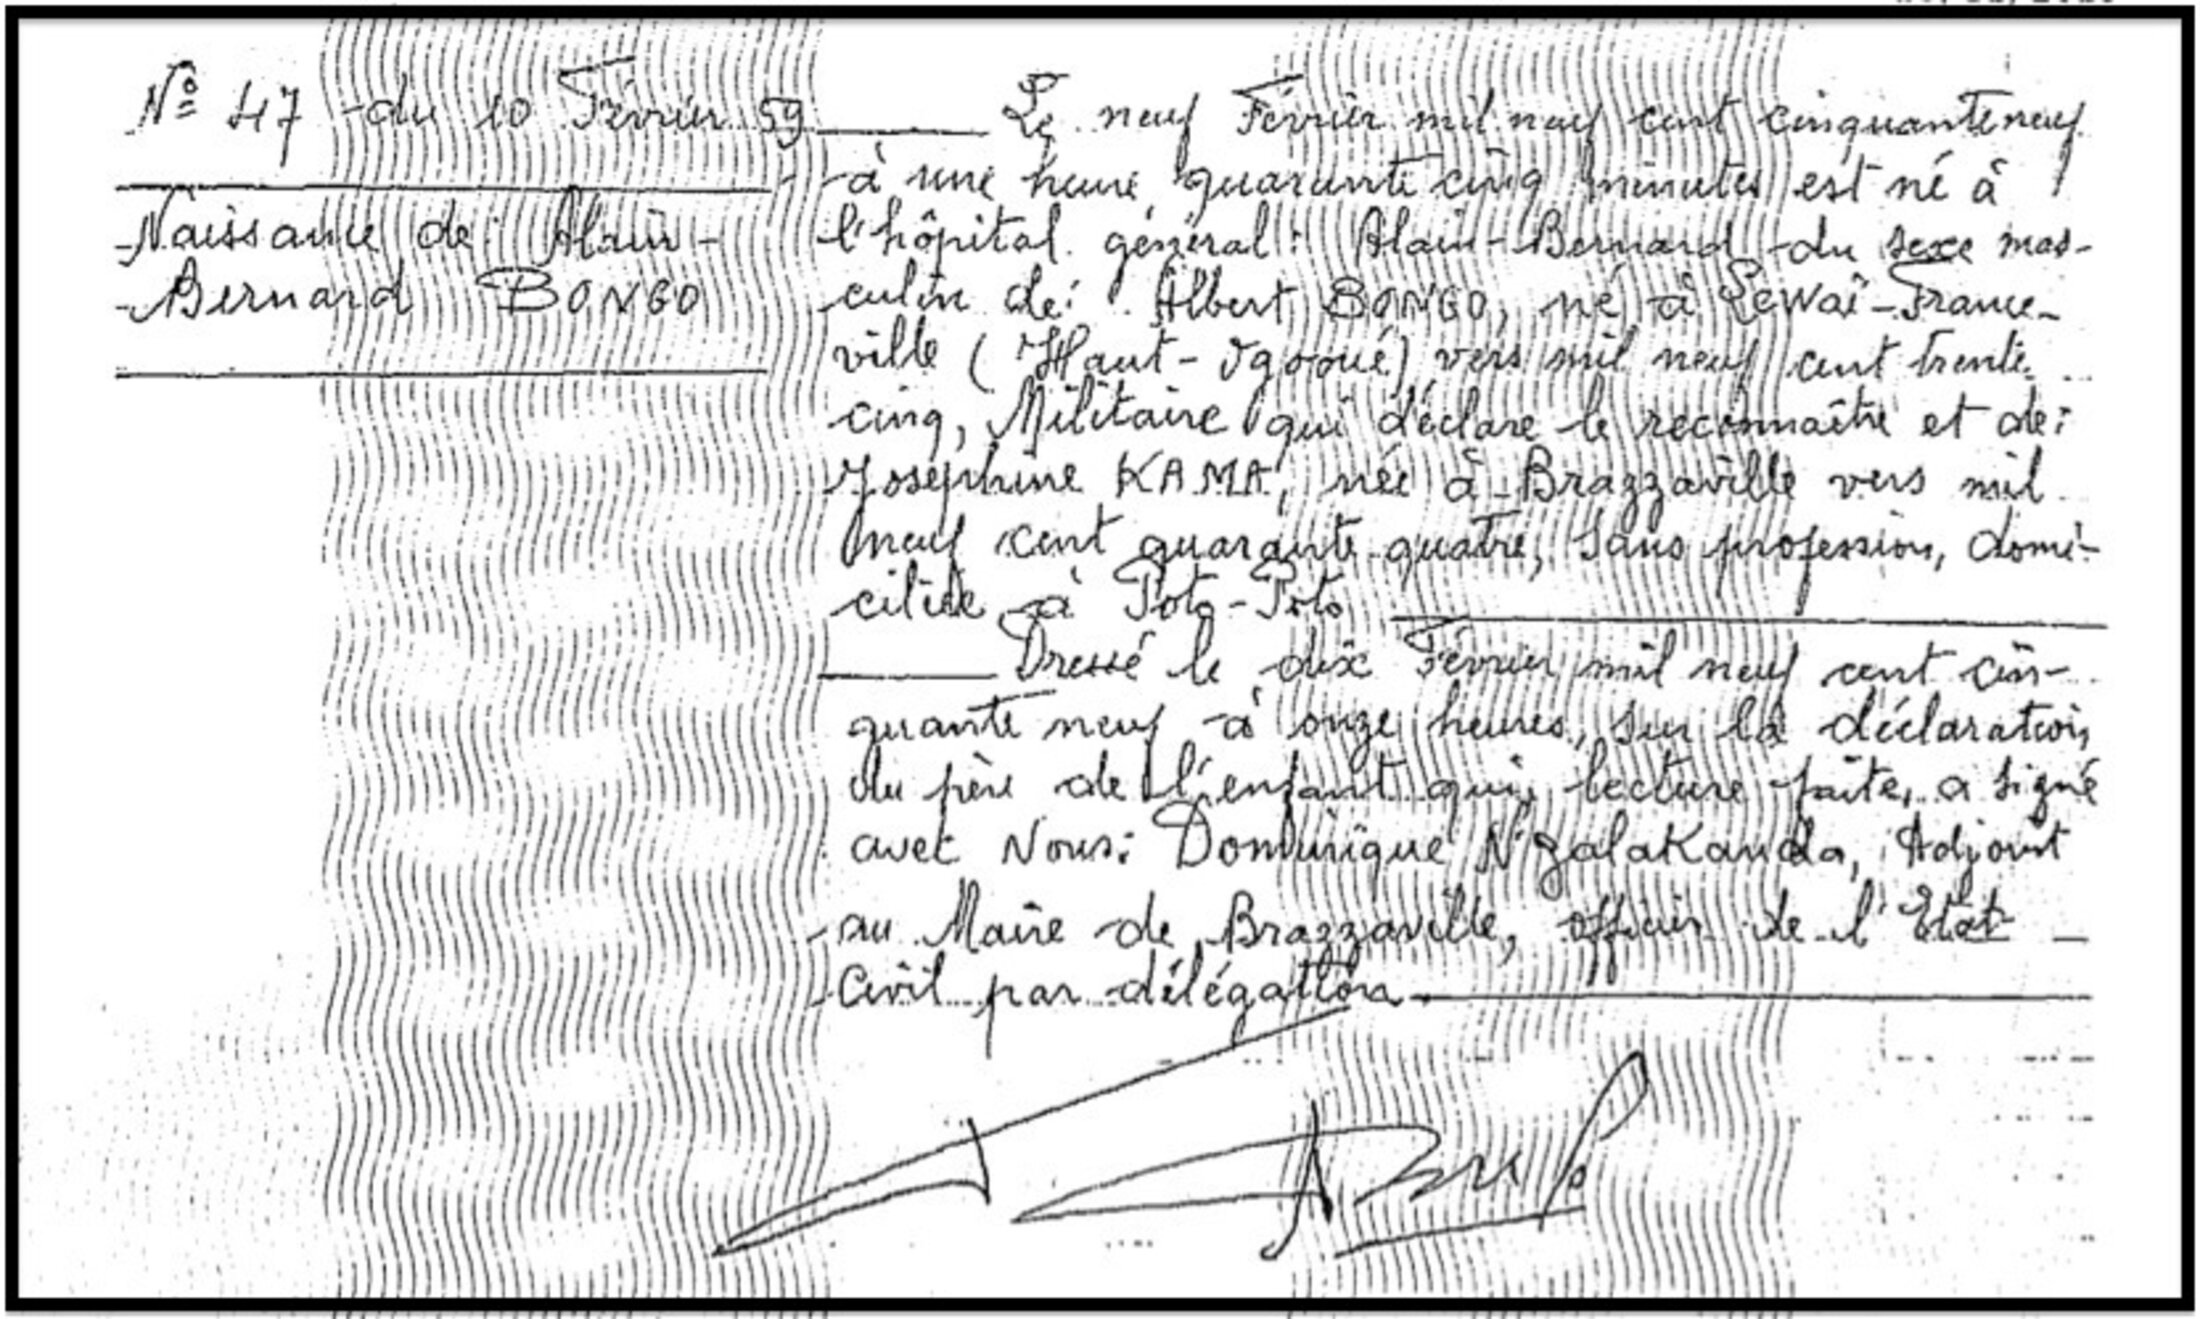 Nº 47 du 10 Février 59
Naissance de: Alain-
Bernard BONGO
Le neuf Février mil neuf cent cinquante neuf
à une heure quarante cinq minutes est né à
l'hôpital général: Alain-Bernard du sexe mas-
culin de: Albert BONGO, né à Lewaï-France-
ville (Haut-Ogooué) vers mil neuf cent trente
cinq, Militaire qui déclare le reconnaître et de:
Joséphine KAMA, née à Brazzaville vers mil
neuf cent quarante quatre, sans profession, domi-
ciliée à Poto-Poto
Dressé le dix Février mil neuf cent cin-
quante neuf à onze heures, sur la déclaration
du père de l'enfant qui, lecture faite, a signé
avec Nous: Dominique N'ZalaKanda, Adjoint
au Maire de Brazzaville, officier de l'Etat
Civil par délégation